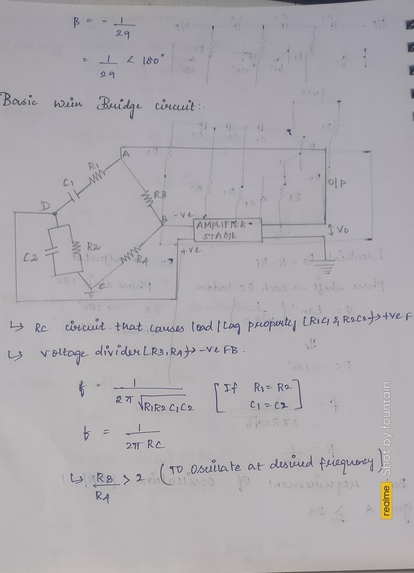 β = - 1/29
= 1/29 < 180°
Basic wein Bridge circuit:-
A
R1
C1
D
R3
B
-ve
AMPLIFIER
STAGE
+ve
O/P
Vo
C2
R2
R4
C
↳ RC circuit that causes lead/lag property [R1C1 & R2C2] → +ve F
↳ voltage divider [R3, R4] → -ve FB.
f = 1 / 2π √R1R2C1C2 [If R1 = R2
C1 = C2]
f = 1 / 2π RC
↳ R3/R4 > 2 (To oscillate at desired frequency)
realme Shot by fountain